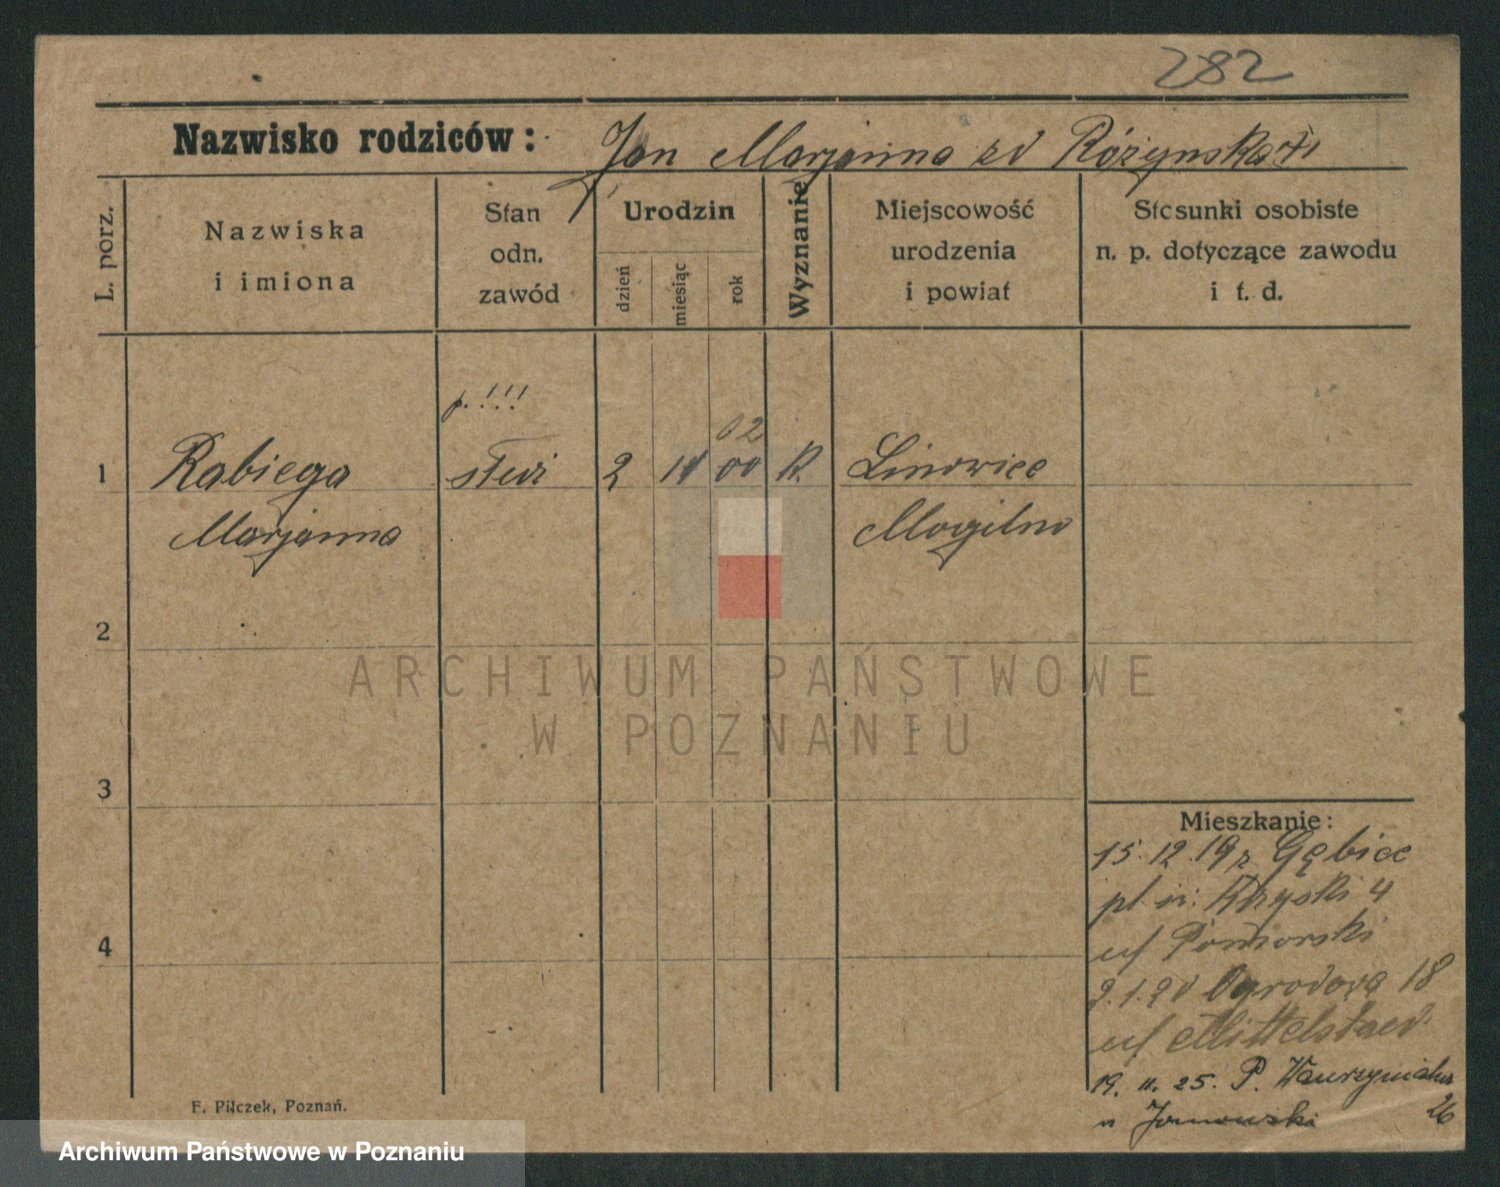 282
Nazwisko rodziców: Jan Marjanna zd Różynska
L. porz.
Nazwiska
i imiona
Stan
odn.
zawód
Urodzin
dzień
miesiąc
rok
Wyznanie
Miejscowość
urodzenia
i powiat
Stosunki osobiste
n. p. dotyczące zawodu
i t. d.
p. !!!
02
1 Rabiega 2 11 00 R. Linowiec
Marjanna Mogilno
2
ARCHIWUM PAŃSTWOWE
W POZNANIU
3
Mieszkanie:
15. 12. 19 z Gębice
4
u/ Pomorski
Ogrodowa 18
u/ Mittelstaed.
19. 11. 25. P. Wawrzyniaka
26
F. Pilczek, Poznań.
Archiwum Państwowe w Poznaniu